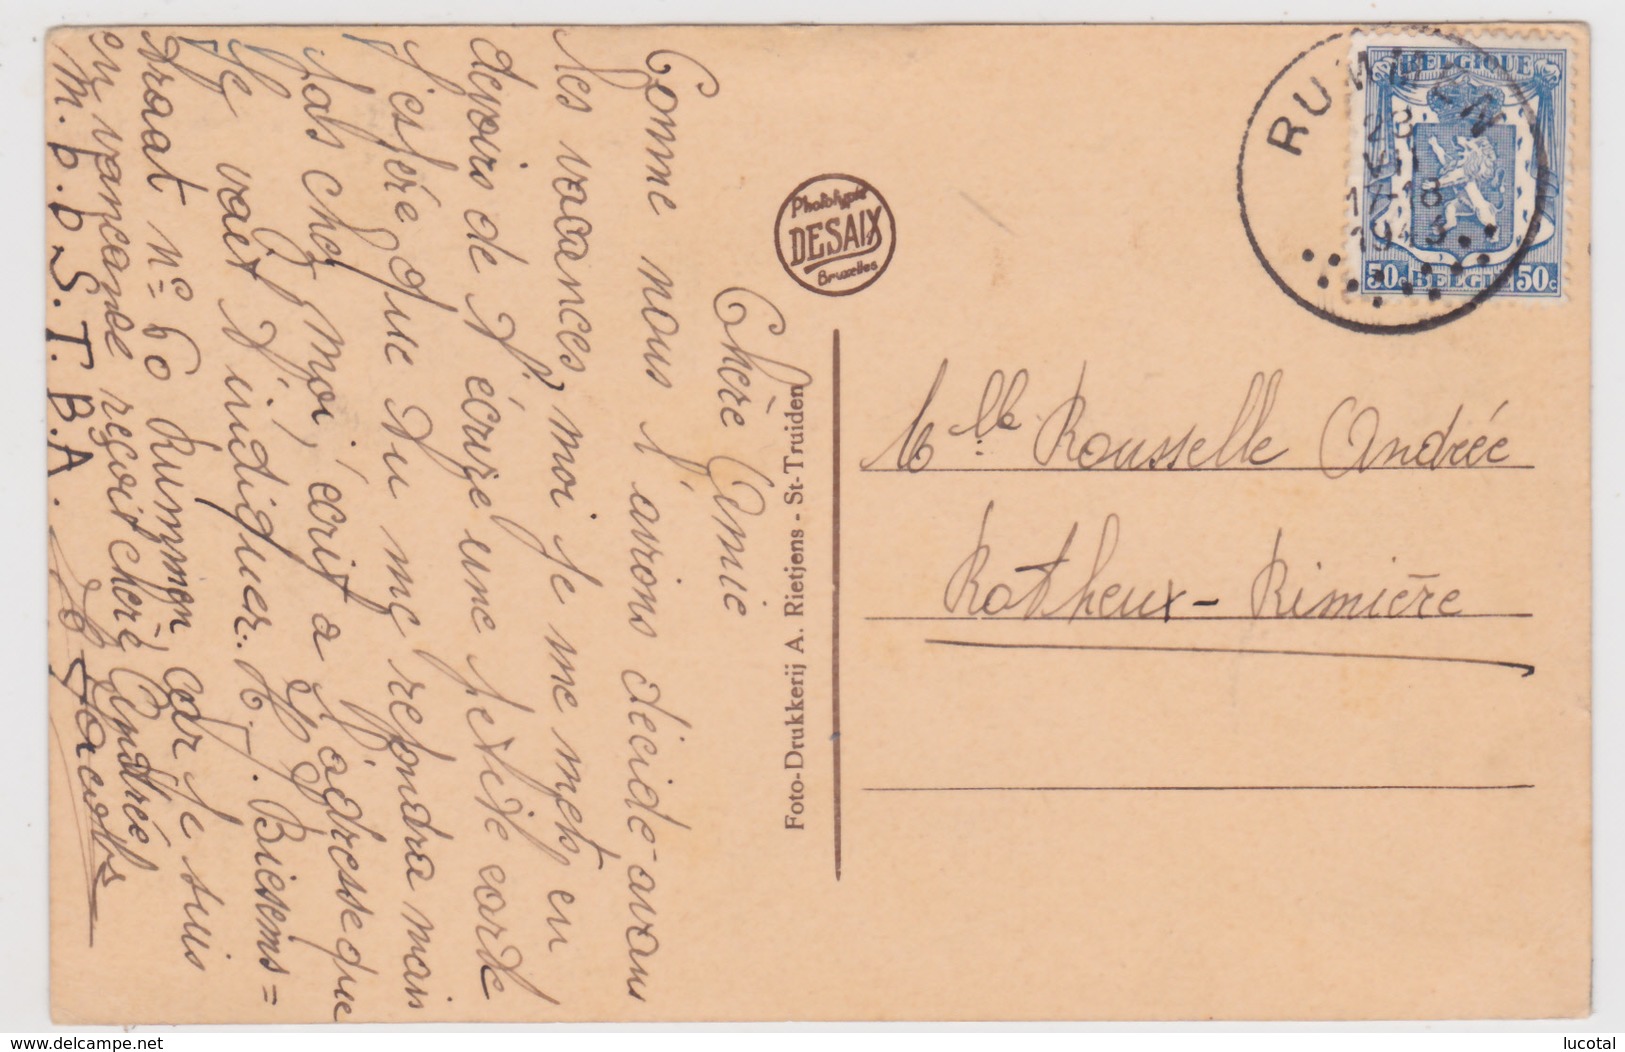 Chère Amie
Comme nous l'avions décidé avant
les vacances, moi je me mets en
devoirs de t'écrire une petite carte
J'espére que tu me repondra mais
pas chez moi, écrit a l'adresse que
je vait t'indiquer. M. J. Biesems=
straat n° 60 Rummen, car je suis
en vancance reçoit chère Andrée
M. B. B. S. T. B. A. Jacobs
Phototypie
DESAIX
Bruxelles
Foto-Drukkerij A. Rietjens - St-Truiden
RUMMEN
23
VII
17-18
1943
BELGIQUE
50c BELGIE 50c
Mlle Rousselle Andrée
Rotheux-Rimière
www.delcampe.net
lucotal